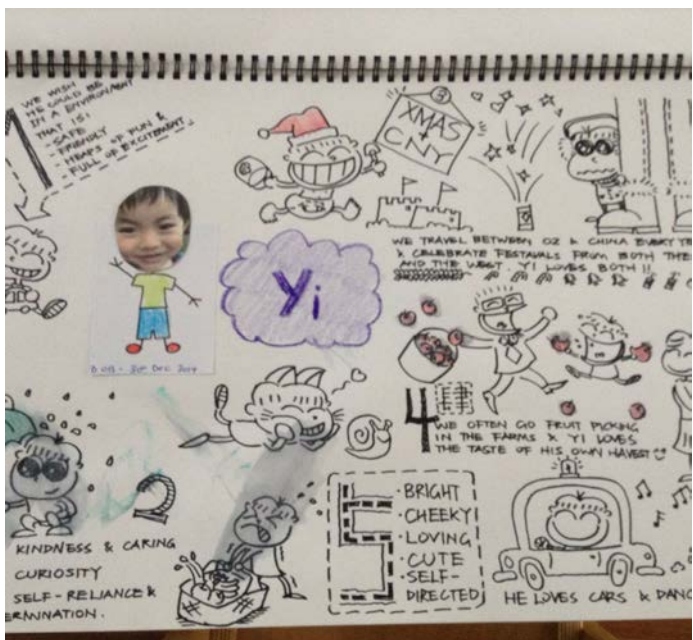 1
WE WISH
HE COULD BE
IN A ENVIRONMENT
THAT IS:
- SAFE
- FRIENDLY
- HEAPS OF FUN &
FULL OF EXCITEMENT
XMAS
+
CNY
WE TRAVEL BETWEEN OZ & CHINA EVERY
& CELEBRATE FESTAVALS FROM BOTH THE
AND THE WEST. YI LOVES BOTH!!
Yi
DEC
4
WE OFTEN GO FRUIT PICKING
IN THE FARMS & YI LOVES
THE TASTE OF HIS OWN HAVEST
2
KINDNESS & CARING
CURIOSITY
SELF-RELIANCE &
ERMINATION.
5
· BRIGHT
· CHEEKY
· LOVING
· CUTE
· SELF-
DIRECTED
HE LOVES CARS & DANC